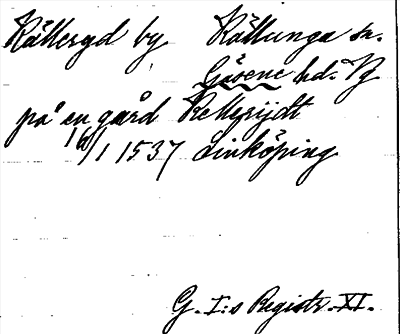 Källeryd by Källunga sn.
Gäsene hd. Vg
på en gård Kellerydt
16/1 1537 Linköping
G. I:s Registr. XI.